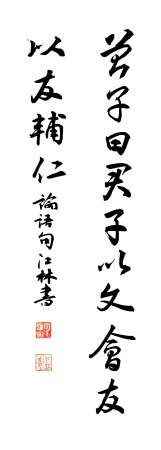 曾子曰君子以文會友
以友輔仁 論語句江林書